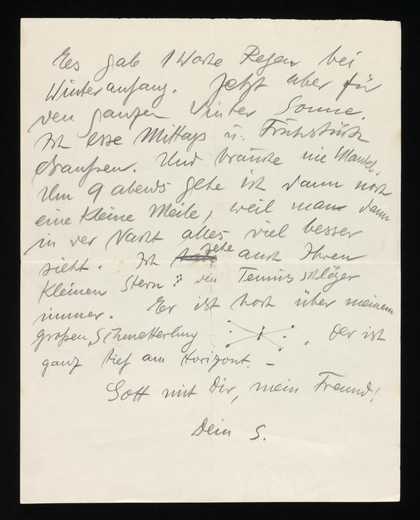 Es gab 1 Woche Regen bei
Winteranfang. Jetzt aber für
den ganzen Winter Sonne.
Ich esse Mittags u. Frühstück
draussen. Und brauche nie Mantel.
Um 9 abends gehe ich dann noch
eine kleine Meile, weil man dann
in der Nacht alles viel besser
sieht. Ich sehe auch Ihren
kleinen Stern den Tennisschläger
immer. Er ist hoch über meinem
großen Schmetterling , der ist
ganz tief am Horizont. –
Gott mit Dir, mein Freund!
Dein S.